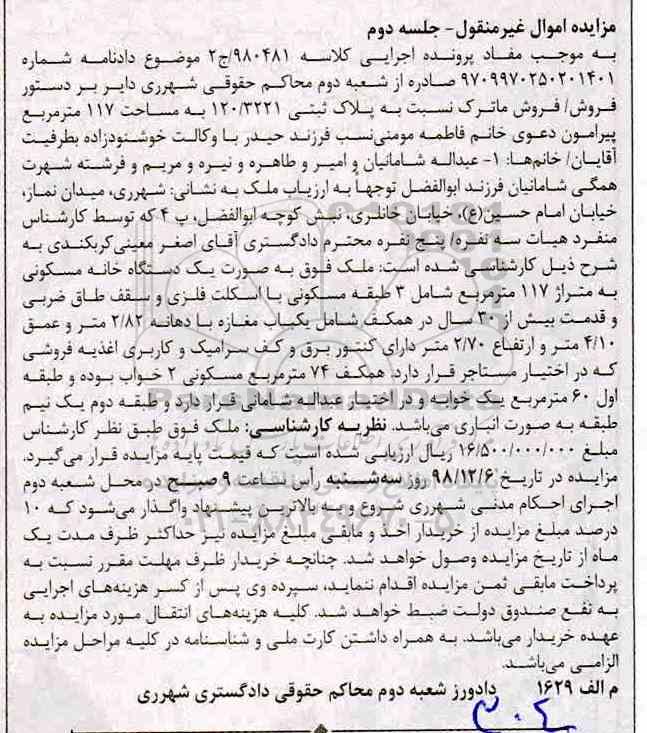 مزایده اموال غیرمنقول- جلسه دوم
به موجب مفاد پرونده اجرایی کلاسه ۹۸۰۴۸۱/ج۲ موضوع دادنامه شماره
۹۷۰۹۹۷۰۲۵۰۲۰۱۴۰۱ صادره از شعبه دوم محاکم حقوقی شهرری دایر بر دستور
فروش/ فروش ماترک نسبت به پلاک ثبتی ۱۲۰/۳۲۲۱ به مساحت ۱۱۷ مترمربع
پیرامون دعوی خانم فاطمه مومنی‌نسب فرزند حیدر با وکالت خوشنودزاده بطرفیت
آقایان/ خانم‌ها: ۱- عبداله شامانیان و امیر و طاهره و نیره و مریم و فرشته شهرت
همگی شامانیان فرزند ابوالفضل توجهاً به ارزیاب ملک به نشانی: شهرری، میدان نماز،
خیابان امام حسین(ع)، خیابان خانلری، نبش کوچه ابوالفضل، پ ۴ که توسط کارشناس
منفرد هیات سه نفره/ پنج نفره محترم دادگستری آقای اصغر معینی‌کربکندی به
شرح ذیل کارشناسی شده است: ملک فوق به صورت یک دستگاه خانه مسکونی
به متراژ ۱۱۷ مترمربع شامل ۳ طبقه مسکونی با اسکلت فلزی و سقف طاق ضربی
و قدمت بیش از ۳۰ سال در همکف شامل یکباب مغازه با دهانه ۲/۸۲ متر و عمق
۴/۱۰ متر و ارتفاع ۲/۷۰ متر دارای کنتور برق و کف سرامیک و کاربری اغذیه فروشی
که در اختیار مستاجر قرار دارد. همکف ۷۴ مترمربع مسکونی ۲ خواب بوده و طبقه
اول ۶۰ مترمربع یک خوابه و در اختیار عبداله شامانی قرار دارد و طبقه دوم یک نیم
طبقه به صورت انباری می‌باشد. نظریه کارشناسی: ملک فوق طبق نظر کارشناس
مبلغ ۱۶/۵۰۰/۰۰۰/۰۰۰ ریال ارزیابی شده است که قیمت پایه مزایده قرار می‌گیرد.
مزایده در تاریخ ۹۸/۱۲/۶ روز سه‌شنبه رأس ساعت ۹ صبح در محل شعبه دوم
اجرای احکام مدنی شهرری شروع و به بالاترین پیشنهاد واگذار می‌شود که ۱۰
درصد مبلغ مزایده از خریدار اخذ و مابقی مبلغ مزایده نیز حداکثر ظرف مدت یک
ماه از تاریخ مزایده وصول خواهد شد. چنانچه خریدار ظرف مهلت مقرر نسبت به
پرداخت مابقی ثمن مزایده اقدام ننماید، سپرده وی پس از کسر هزینه‌های اجرایی
به نفع صندوق دولت ضبط خواهد شد. کلیه هزینه‌های انتقال مورد مزایده به
عهده خریدار می‌باشد. به همراه داشتن کارت ملی و شناسنامه در کلیه مراحل مزایده
الزامی می‌باشد.
م الف ۱۶۲۹ دادورز شعبه دوم محاکم حقوقی دادگستری شهرری